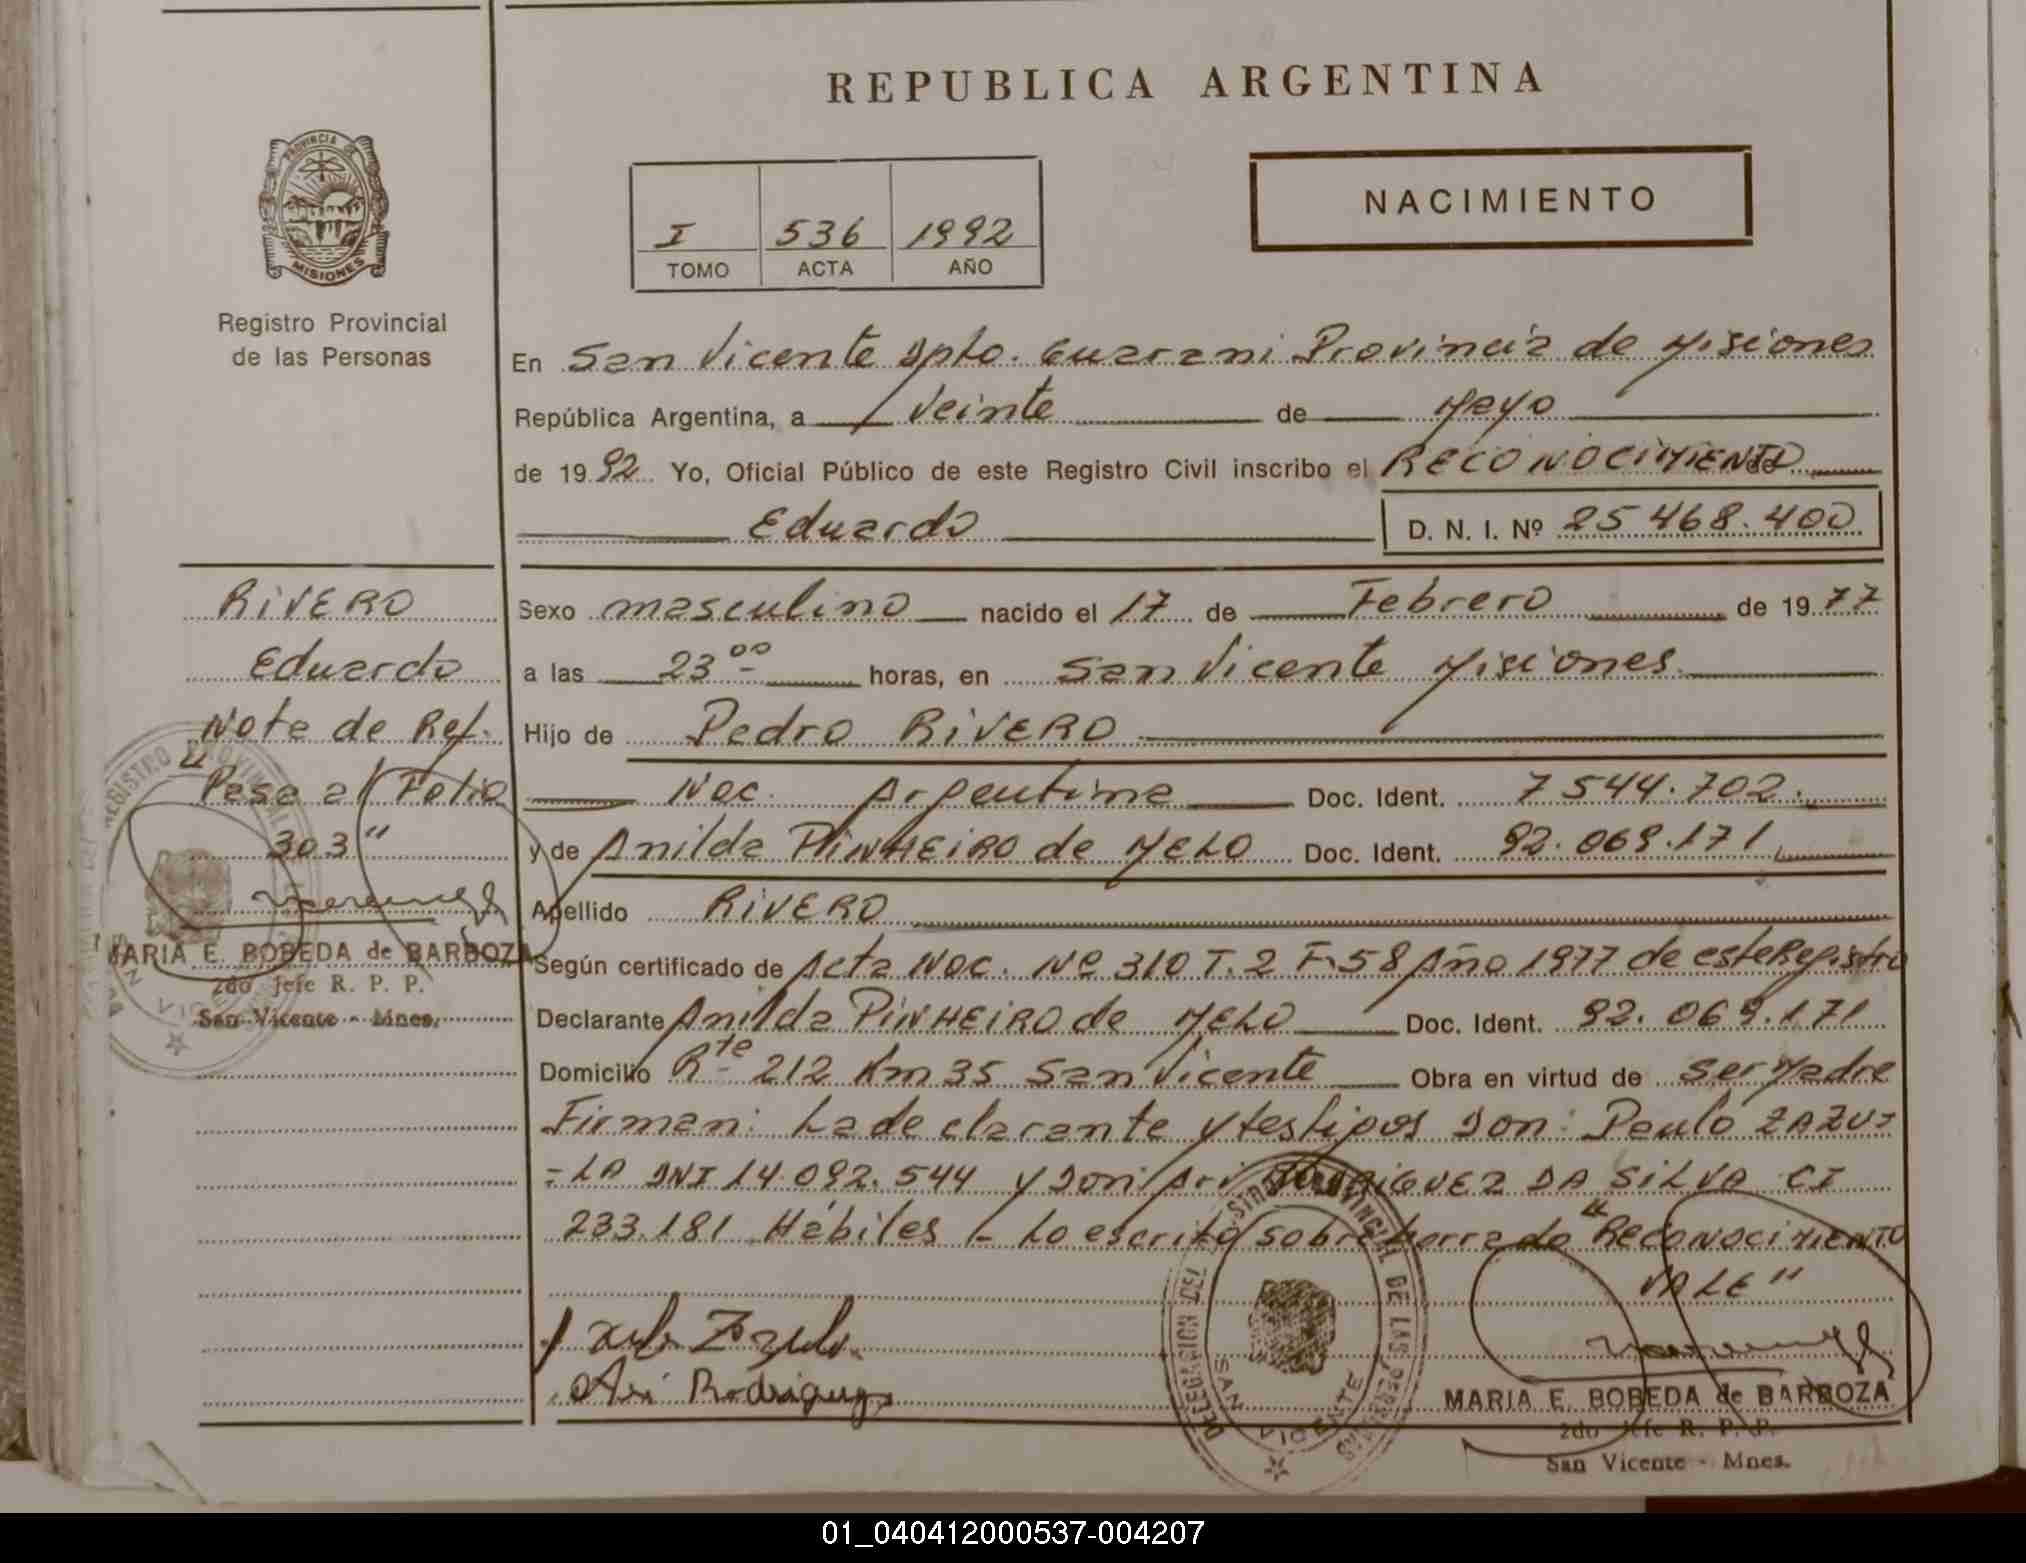 REPUBLICA ARGENTINA
PROVINCIA DE
MISIONES
Registro Provincial
de las Personas
NACIMIENTO
I 536 1992
TOMO ACTA AÑO
En San Vicente Dpto. Guarani Provincia de Misiones
República Argentina, a Veinte de Mayo
de 1992 Yo, Oficial Público de este Registro Civil inscribo el RECONOCIMIENTO
Eduardo D. N. I. Nº 25.468.400
Sexo masculino nacido el 17 de Febrero de 1977
a las 23 00 horas, en San Vicente Misiones
Hijo de Pedro RIVERO
Nac. Argentina Doc. Ident. 7.544.702.
y de Anilda PINHEIRO de MELO Doc. Ident. 92.069.171
Apellido RIVERO
Según certificado de Acta Nac. Nº 310 T. 2 F. 58 Año 1977 de este Registro
Declarante Anilda PINHEIRO de MELO Doc. Ident. 92.069.171
Domicilio Rta 212 Km 35 San Vicente Obra en virtud de ser Madre
Firman: La declarante y testigos Don: Paulo ZAZU-
-LA DNI 14.092.544 y Don Ari RODRIGUEZ DA SILVA CI
233.181 Hábiles - Lo escrito sobre borrado "RECONOCIMIENTO
VALE"
Ari Rodriguez
MARIA E. BOBEDA de BARBOZA
2do Jefe R. P. P.
San Vicente - Mnes.
DELEGACION DEL REGISTRO PROVINCIAL DE LAS PERSONAS
SAN VICENTE
RIVERO
Eduardo
Nota de Ref.
"Pasa al Folio
303"
MARIA E. BOBEDA de BARBOZA
2do Jefe R. P. P.
San Vicente - Mnes.
01_040412000537-004207